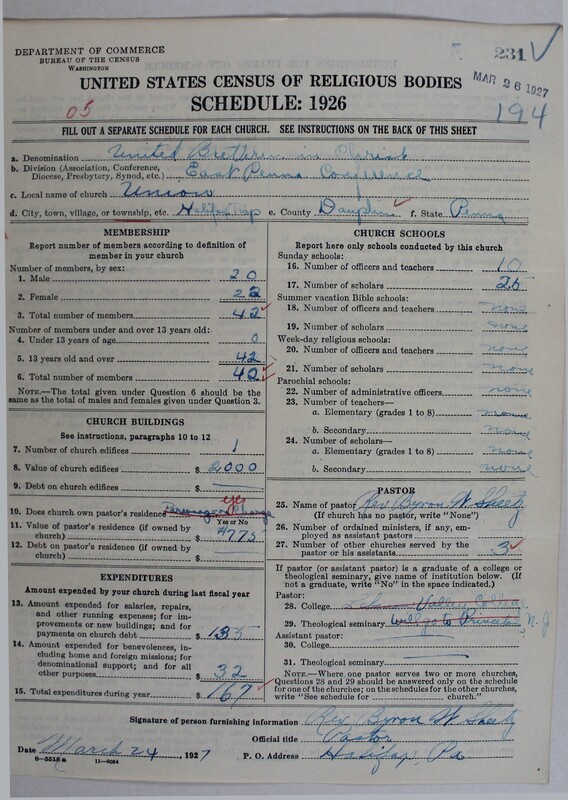 DEPARTMENT OF COMMERCE
BUREAU OF THE CENSUS
WASHINGTON
231
MAR 26 1927
194
UNITED STATES CENSUS OF RELIGIOUS BODIES
SCHEDULE: 1926
05
FILL OUT A SEPARATE SCHEDULE FOR EACH CHURCH. SEE INSTRUCTIONS ON THE BACK OF THIS SHEET
a. Denomination United Brethren in Christ
b. Division (Association, Conference, Diocese, Presbytery, Synod, etc.) East Penna Conference
c. Local name of church Union
d. City, town, village, or township, etc. Halifax Twp e. County Dauphin f. State Penna
MEMBERSHIP
Report number of members according to definition of member in your church
Number of members, by sex:
1. Male 20
2. Female 22
3. Total number of members 42
Number of members under and over 13 years old:
4. Under 13 years of age 0
5. 13 years old and over 42
6. Total number of members 42
NOTE.—The total given under Question 6 should be the same as the total of males and females given under Question 3.
CHURCH BUILDINGS
See instructions, paragraphs 10 to 12
7. Number of church edifices 1
8. Value of church edifices $ 2000
9. Debt on church edifices $
yes
10. Does church own pastor's residence Parsonage on Charge
Yes or No
11. Value of pastor's residence (if owned by church) $775
12. Debt on pastor's residence (if owned by church) $
EXPENDITURES
Amount expended by your church during last fiscal year
13. Amount expended for salaries, repairs, and other running expenses; for improvements or new buildings; and for payments on church debt $ 135
14. Amount expended for benevolences, including home and foreign missions; for denominational support; and for all other purposes $ 32
15. Total expenditures during year $ 167
CHURCH SCHOOLS
Report here only schools conducted by this church
Sunday schools:
16. Number of officers and teachers 10
17. Number of scholars 25
Summer vacation Bible schools:
18. Number of officers and teachers none
19. Number of scholars none
Week-day religious schools:
20. Number of officers and teachers none
21. Number of scholars none
Parochial schools:
22. Number of administrative officers none
23. Number of teachers—
a. Elementary (grades 1 to 8) none
b. Secondary none
24. Number of scholars—
a. Elementary (grades 1 to 8) none
b. Secondary none
PASTOR
25. Name of pastor Rev Byron W. Sheetz
(If church has no pastor, write "None")
26. Number of ordained ministers, if any, employed as assistant pastors
27. Number of other churches served by the pastor or his assistants 3
If pastor (or assistant pastor) is a graduate of a college or theological seminary, give name of institution below. (If not a graduate, write "No" in the space indicated.)
Pastor:
28. College Valley College
29. Theological seminary will go to Princeton N. J
Assistant pastor:
30. College
31. Theological seminary
NOTE.—Where one pastor serves two or more churches, Questions 28 and 29 should be answered only on the schedule for one of the churches; on the schedules for the other churches, write "See schedule for church."
Signature of person furnishing information Rev. Byron W. Sheetz
Official title Pastor
Date March 24, 1927 P. O. Address Halifax, Pa